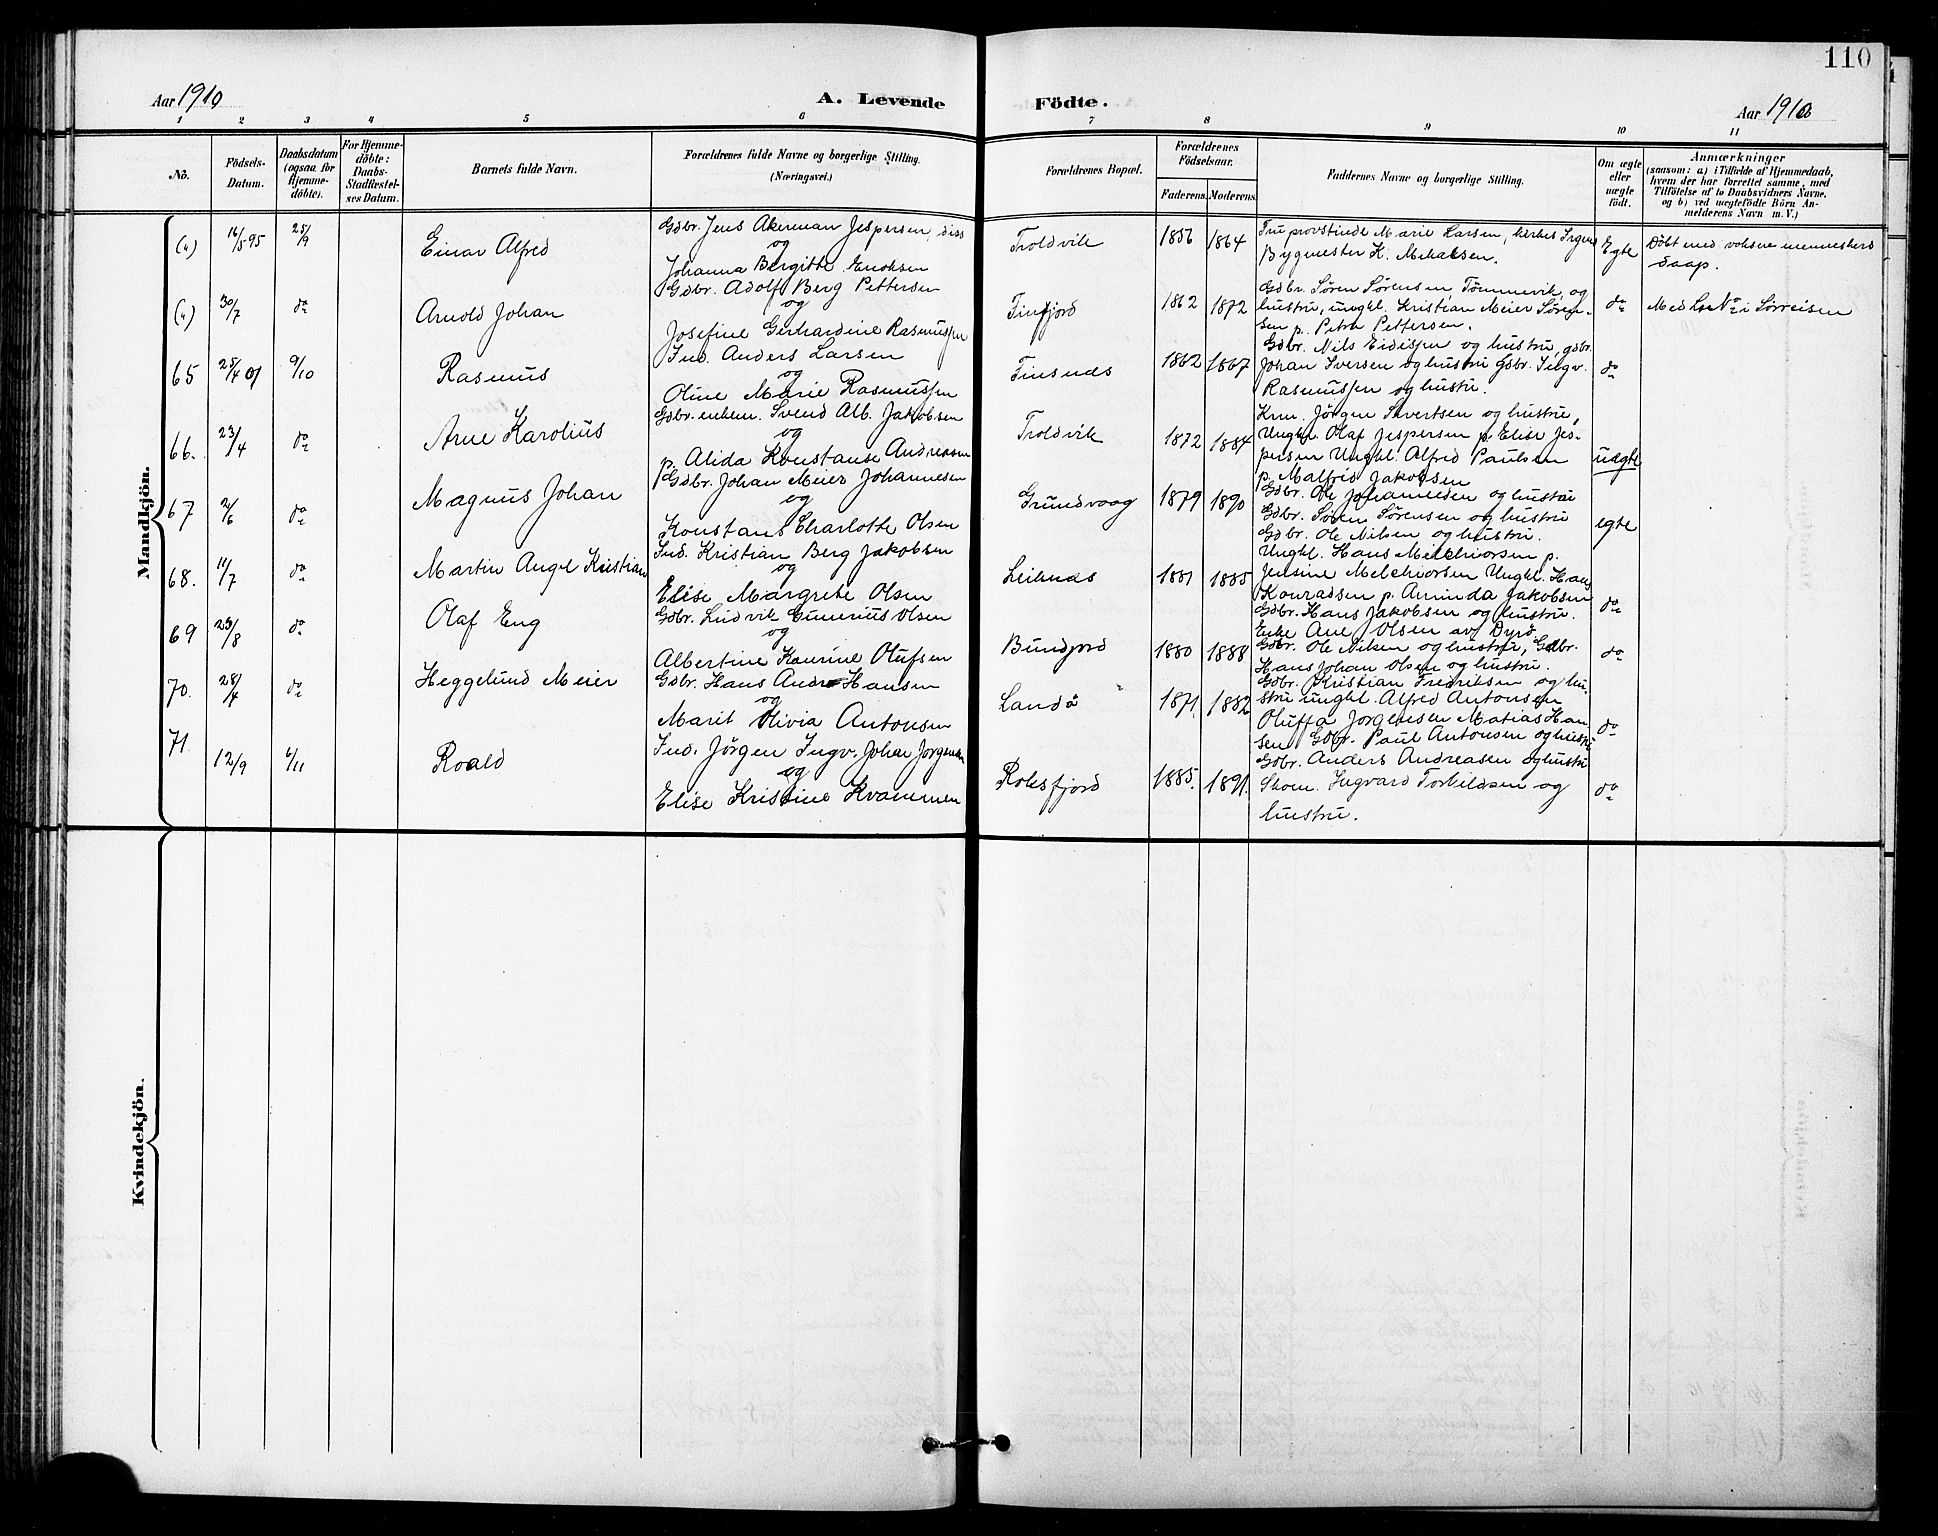 110
Aar 1910
A. Levende
Födte.
Aar 1910
1 2 3 4 5 6 7 8 9 10 11
No.
Födsels-
Datum.
Daabsdatum
(ogsaa for
Hjemme-
döbte).
For Hjemme-
döbte:
Daabs-
Stadfæstel-
ses Datum.
Barnets fulde Navn.
Forældrenes fulde Navne og borgerlige Stilling.
(Næringsvei.)
Forældrenes Bopæl.
Forældrenes
Födselsaar.
Faderens. Moderens.
Faddernes Navne og borgerlige Stilling.
Om ægte
eller
uægte
födt.
Anmærkninger
(saasom: a) i Tilfælde af Hjemmedaab,
hvem der har forrettet samme, med
Tilföielse af to Daabsvidners Navne,
og b) ved uægtefödte Börn An-
melderens Navn m. V.)
Mandkjön.
(4) 16/5 95 25/9 Einar Alfred
Gdbr. Jens Akerman Jespersen, diss
og
Johanna Bergitte Eriksen
Troldvik 1856 1864
Fru provstinde Marie Larsen,
Bygmester K. Mikalsen.
Egte
Döbt med voksne menneskers
daap.
(4) 30/7 do Arnold Johan
Gdbr. Adolf Berg Pettersen
og
Josefine Gerhardine Rasmussen
Finfjord 1862 1872
Gdbr. Søren Sørensen Tømmervik og
hustru, ungkl. Kristian Meier Søren-
sen p. Petra Pettersen.
do
Med No i Sörreisen
65 25/4 01 9/10 Rasmus
Ind. Anders Larsen
og
Oline Marie Rasmussen
Finsnes 1862 1867
Gdbr. Nils Eidissen og hustru, gdbr.
Johan Iversen og hustru Gdbr. Ingv.
Rasmussen og hustru.
do
66. 23/4 do Arne Karolius
Gdbr. enkem. Svend Alb. Jakobsen
og
p. Alida Konstanse Andreasen
Troldvik 1872 1884
Krm. Jörgen Sivertsen og hustru,
Ungkl. Olaf Jespersen p. Elise Jes-
persen Ungkl. Alfred Paulsen
p. Malfrid Jakobsen
uægte
67 2/6 do Magnus Johan
Gdbr. Johan Meier Johannesen
og
Konstans Charlotte Olsen
Grundvaag 1879 1890
Gdbr. Ole Johannesen og hustru
Gdbr. Søren Sørensen og hustru
Gdbr. Ole Nilsen og hustru.
egte
68. 11/7 do Martin Angel Kristian
Ind. Kristian Berg Jakobsen
og
Elise Margrete Olsen
Leiknes 1881 1885
Ungkl. Hans Melchiorsen p.
Jensine Melchiorsen Ungkl. Hans
Konradsen p. Aminda Jakobsen
Gdbr. Hans Jakobsen og hustru.
do
69 23/8 do Olaf Eng
Gdbr. Ludvik Gunerius Olsen
og
Albertine Kaurine Olufsen
Bundjord 1880 1888
Enke Ane Olsen av Dyrö
Gdbr. Ole Nilsen og hustru, Gdbr.
Hans Johan Olsen og hustru.
do
70. 28/4 do Heggelund Meier
Gdbr. Hans Andr Hansen
og
Marit Olivia Antonsen
Landå 1871 1882
Gdbr. Kristian Fredriksen og hu-
stru ungkl. Alfred Antonsen
Oluffa Jorgensen Matias Han
sen Gdbr. Paul Antonsen og hustru
do
71 12/9 6/11 Roald
Ind. Jörgen Ingv. Johan Jorgensen
og
Elise Kristine Kvammen
Rossfjord 1885. 1891.
Gdbr. Anders Andreasen og hustru
Skom. Ingvard Torkildsen og
hustru.
do
Kvindekjön.